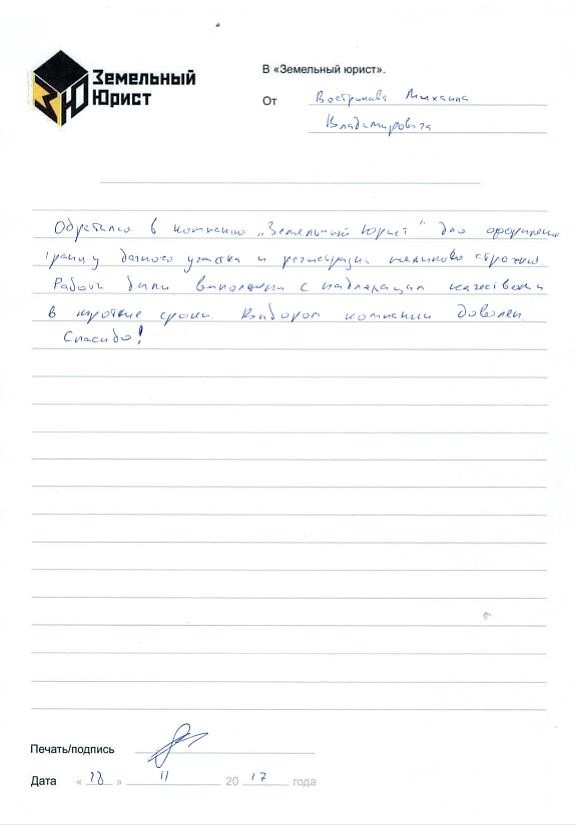 Земельный
Юрист
В «Земельный юрист».
От Вострикова Михаила
Владимировича
Обратился в компанию „Земельный Юрист" для оформления
границ дачного участка и регистрации жилого строения.
Работы были выполнены с надлежащим качеством и
в короткие сроки. Выбором компании доволен.
Спасибо!
Печать/подпись
Дата « » 11 2017 года